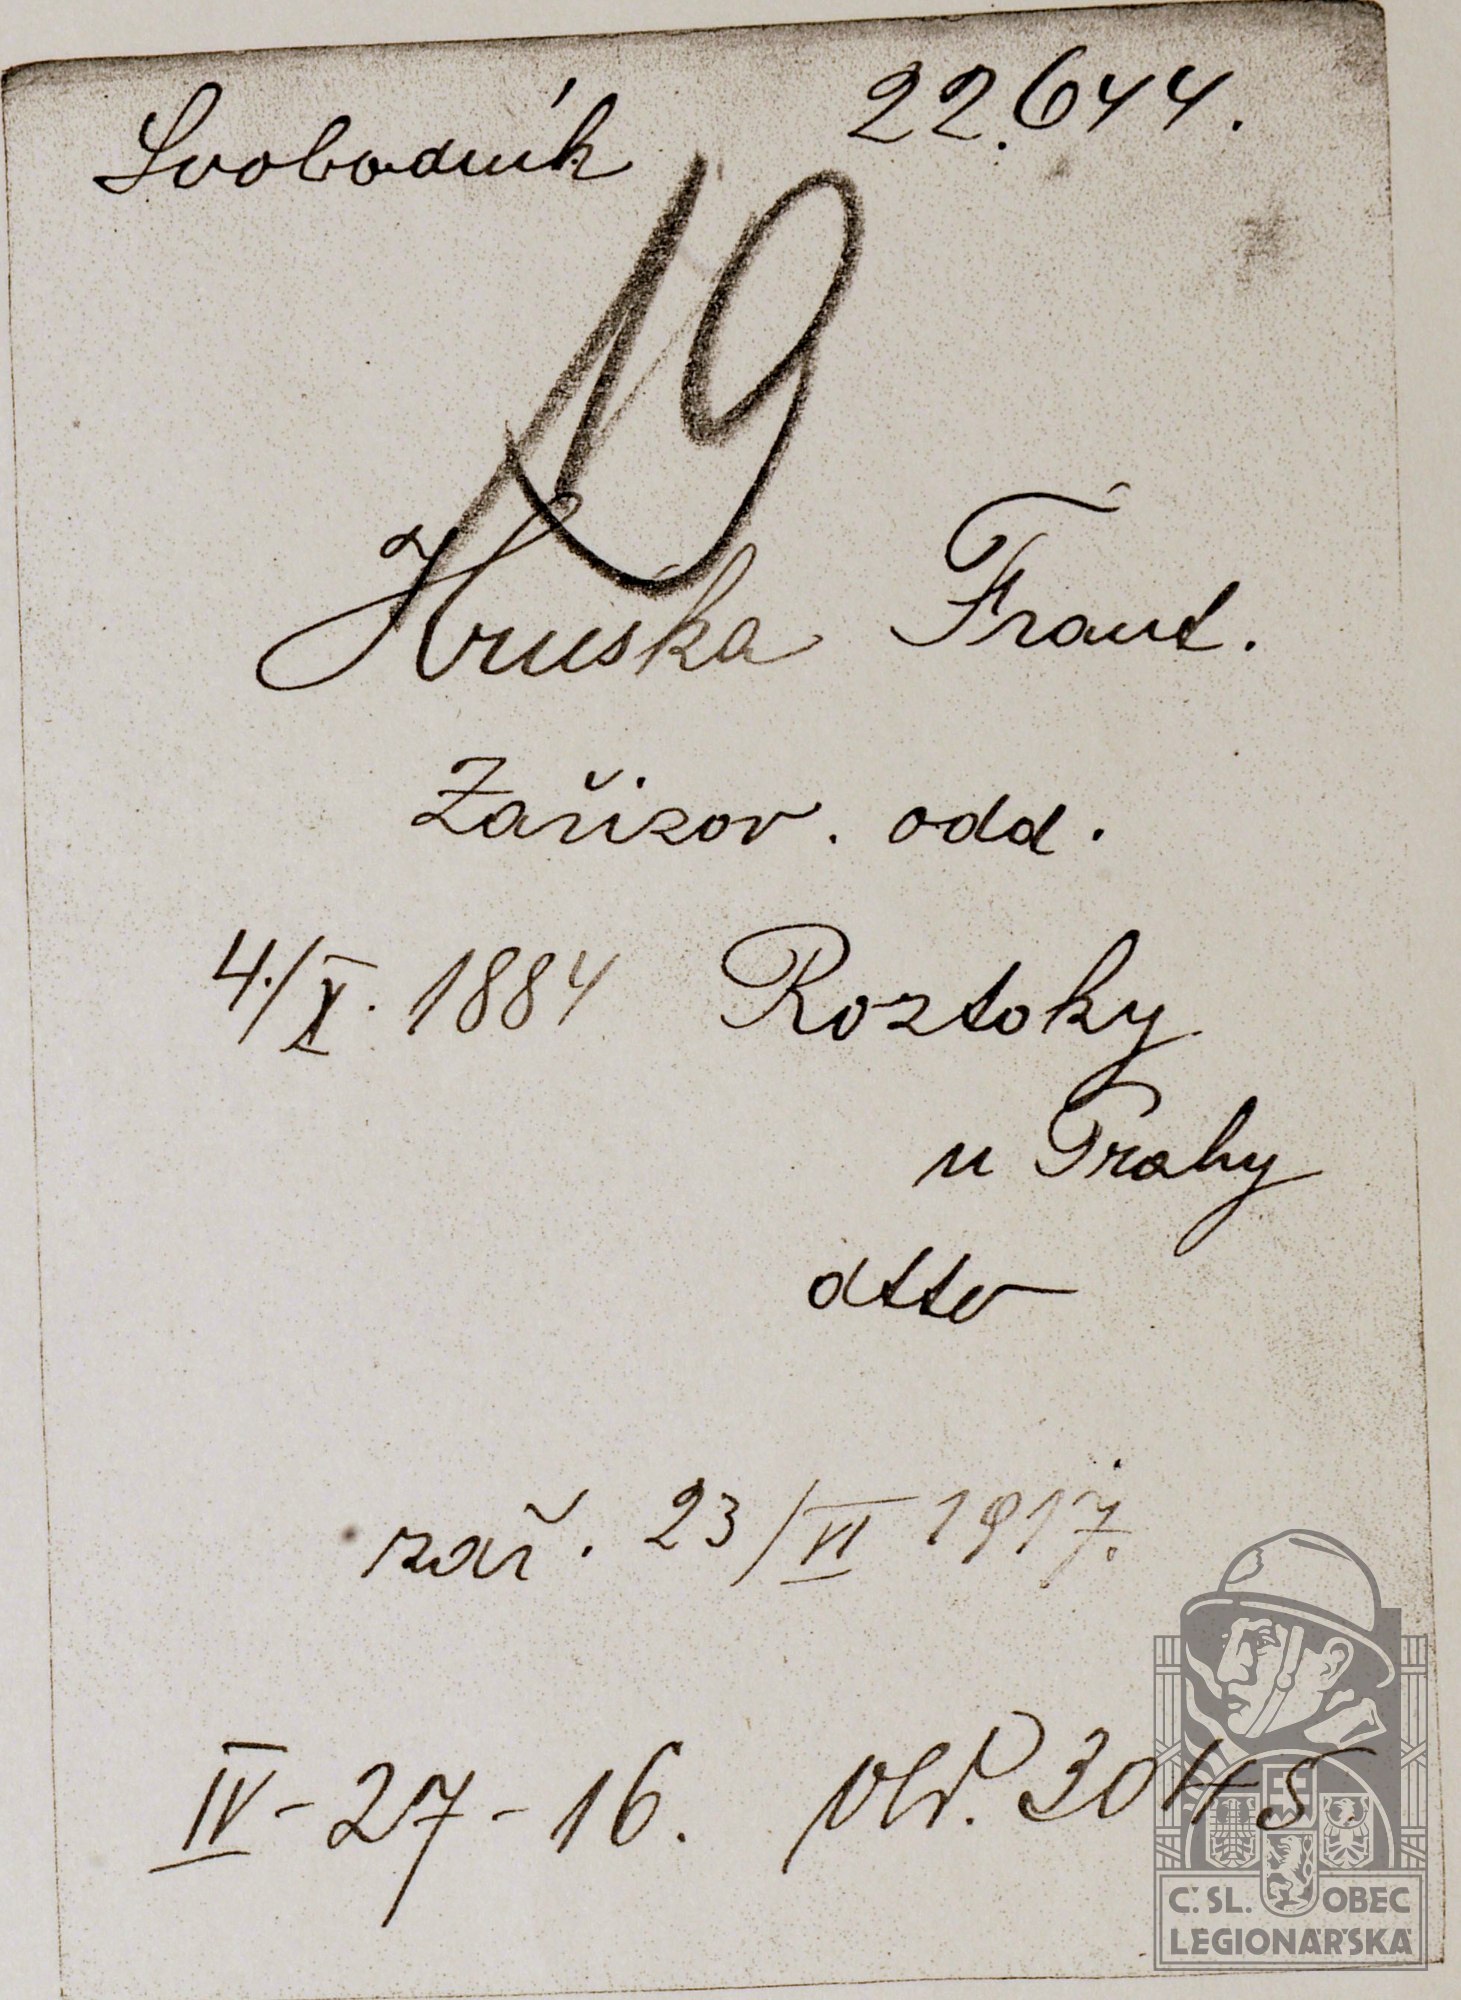 Svobodník 22.644.
19
Hruška Frant.
Zařizov. odd.
4./X. 1884 Roztoky
u Prahy
dtto
zař. 23/VI 1917.
IV-27-16. 30
Č.SL. OBEC
LEGIONÁŘSKÁ